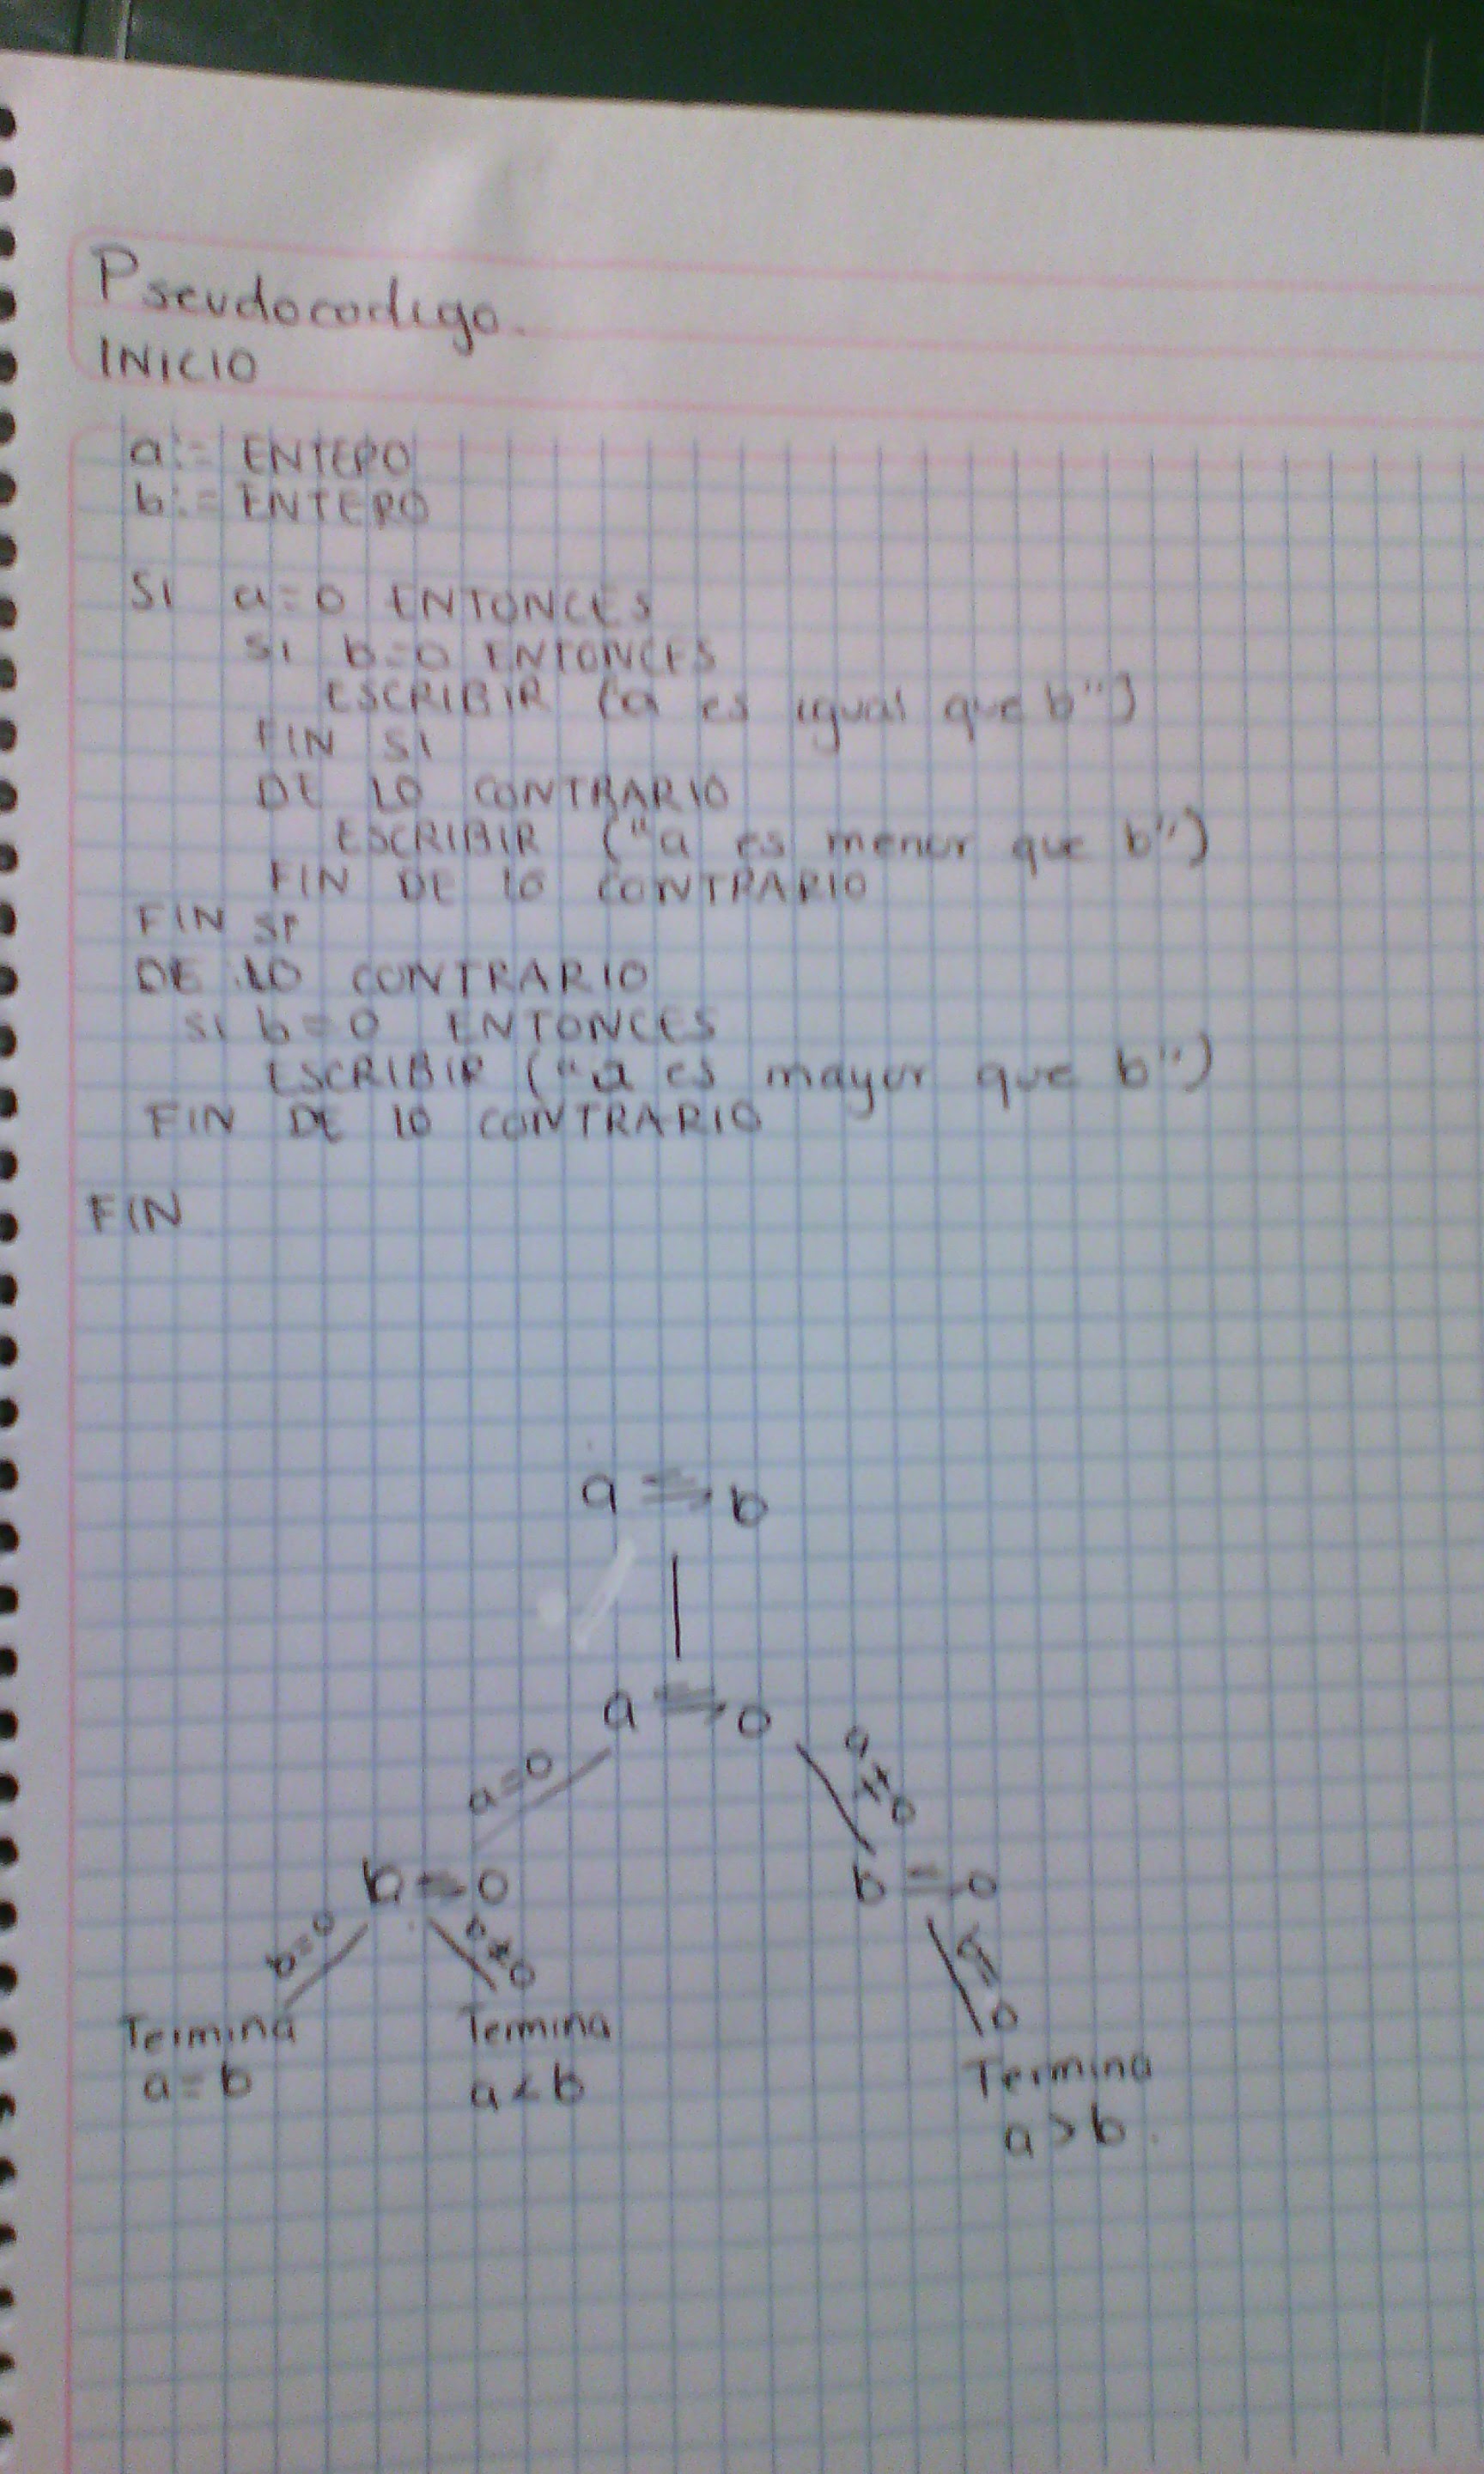 Pseudocodigo.
INICIO
a := ENTERO
b := ENTERO
SI a=0 ENTONCES
SI b=0 ENTONCES
ESCRIBIR ("a es igual que b")
FIN SI
DE LO CONTRARIO
ESCRIBIR ("a es menor que b")
FIN DE LO CONTRARIO
FIN SI
DE LO CONTRARIO
SI b=0 ENTONCES
ESCRIBIR ("a es mayor que b")
FIN DE LO CONTRARIO
FIN
a b
a 0
a=0 a≠0
b 0 b = 0
b=0 b≠0 b=0
Termina Termina Termina
a=b a<b a>b.